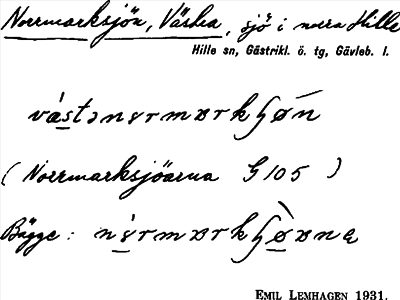 Norrmarksjön, Västra, sjö i norra Hille
Hille sn, Gästrikl. ö. tg, Gävleb. l.
(Norrmarksjöarna G 105)
Bägge:
EMIL LEMHAGEN 1931.